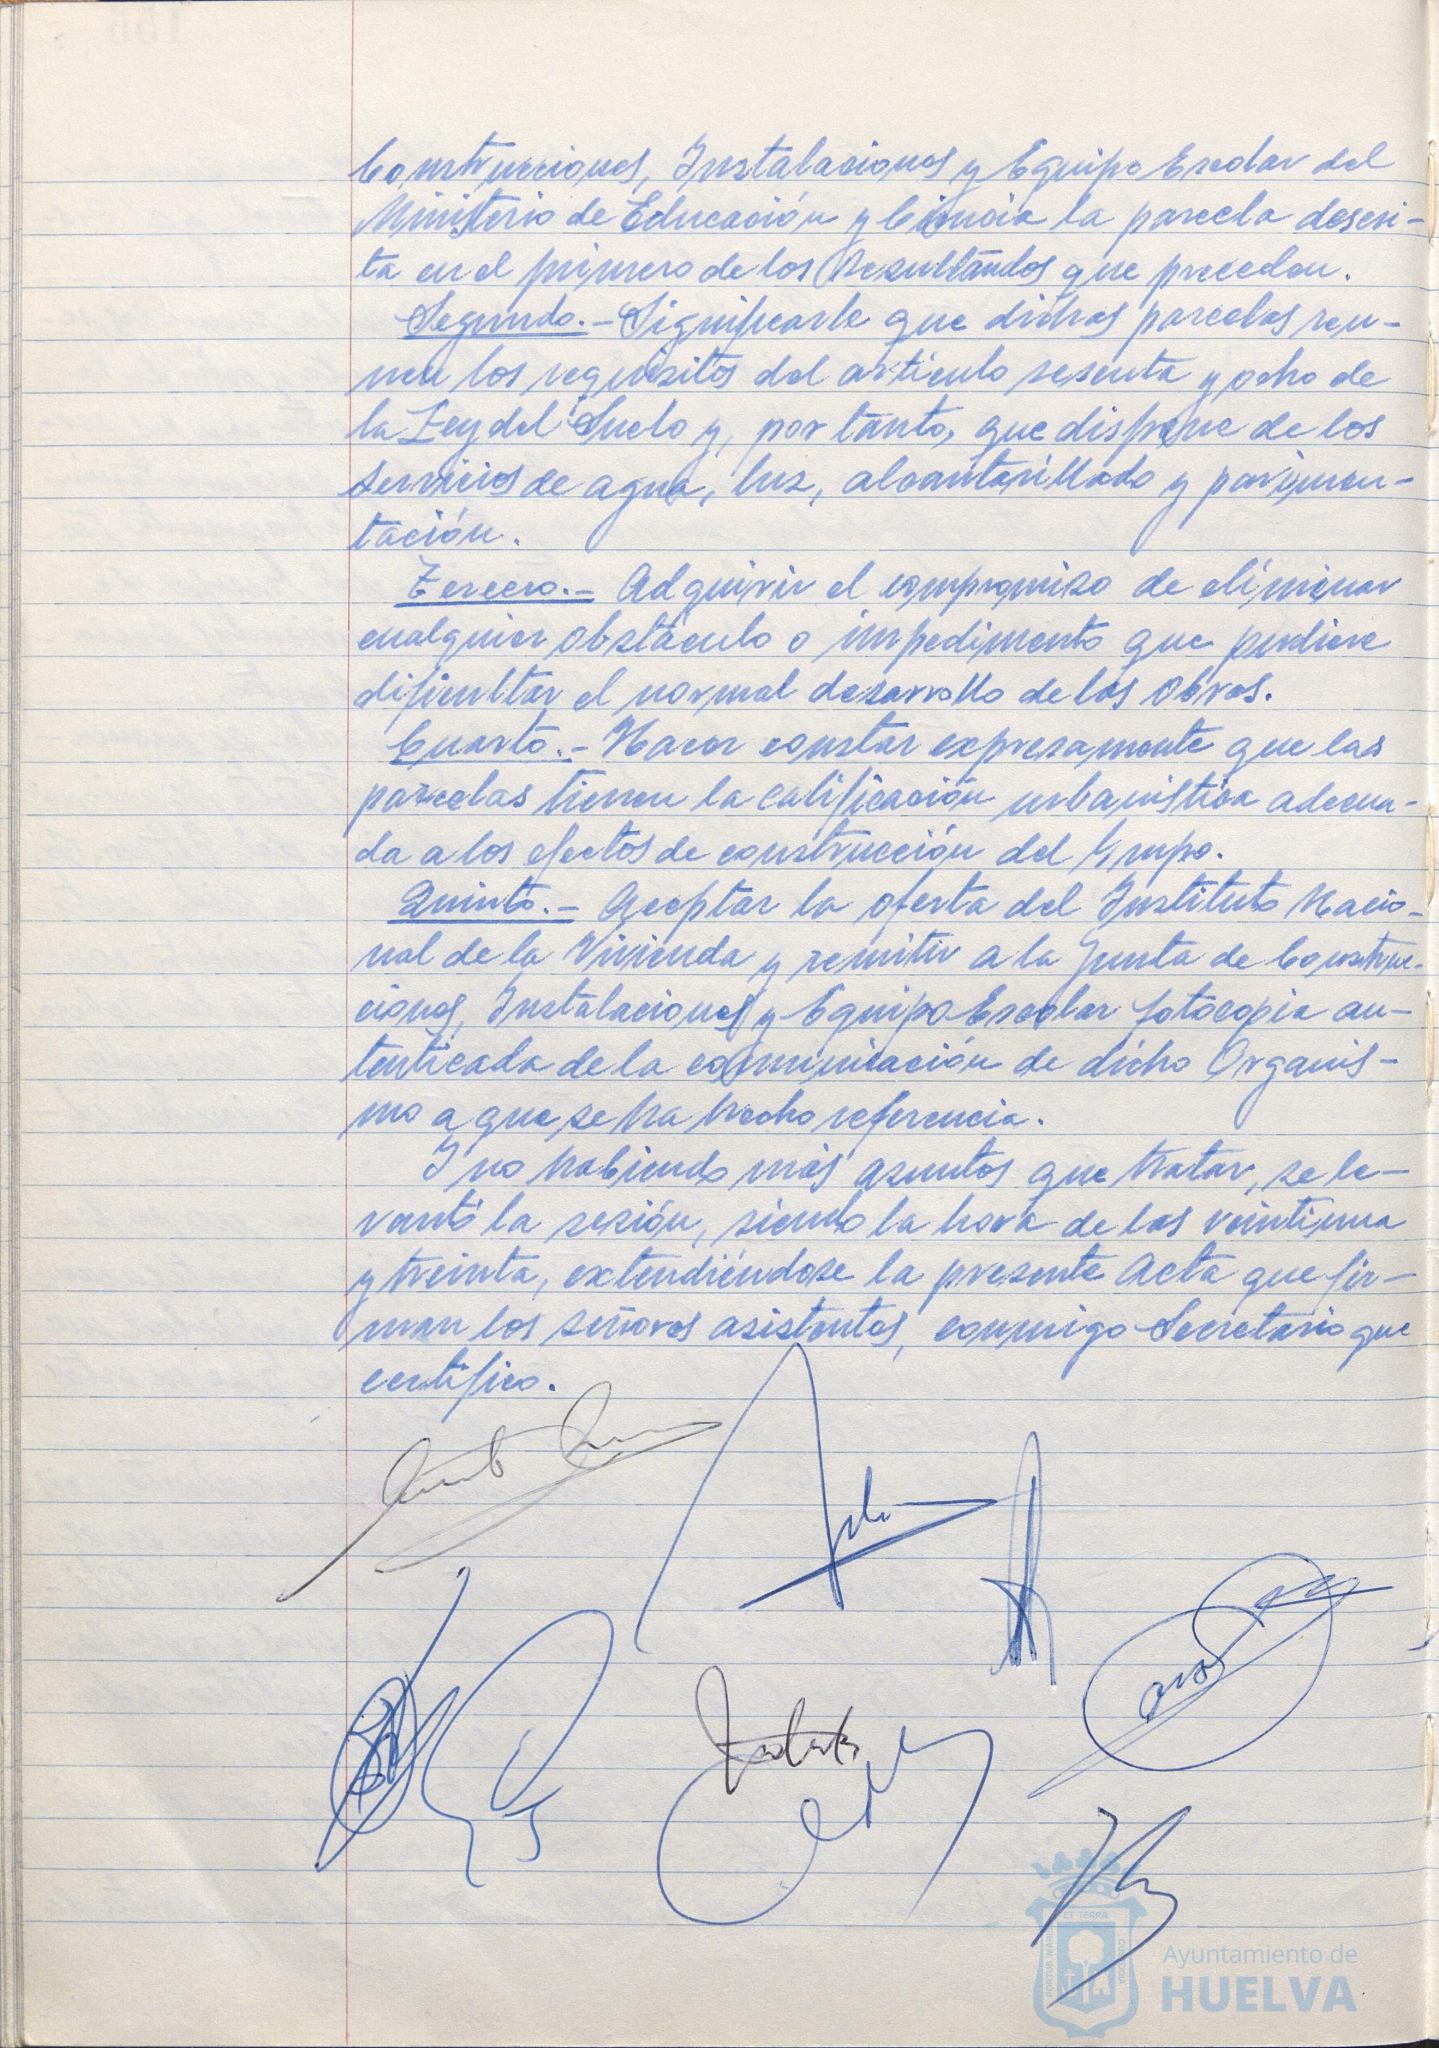 Construcciones, Instalaciones y Equipo Escolar del
Ministerio de Educación y Ciencia la parcela descri-
ta en el primero de los Resultandos que preceden.
Segundo.- Significarle que dichas parcelas reu-
nen los requisitos del artículo sesenta y ocho de
la Ley del Suelo y, por tanto, que dispone de los
servicios de agua, luz, alcantarillado y pavimen-
tación.
Tercero.- Adquirir el compromiso de eliminar
cualquier obstáculo o impedimento que pudiere
dificultar el normal desarrollo de las obras.
Cuarto.- Hacer constar expresamente que las
parcelas tienen la calificación urbanística adecua-
da a los efectos de construcción del Grupo.
Quinto.- Aceptar la oferta del Instituto Nacio-
nal de la Vivienda y remitir a la Junta de Construc-
ciones, Instalaciones y Equipo Escolar fotocopia au-
tenticada de la comunicación de dicho Organis-
mo a que se ha hecho referencia.
Y no habiendo más asuntos que tratar, se le-
vantó la sesión, siendo la hora de las veintiuna
y treinta, extendiéndose la presente Acta que fir-
man los señores asistentes, conmigo Secretario que
certifico.
Ayuntamiento de
HUELVA